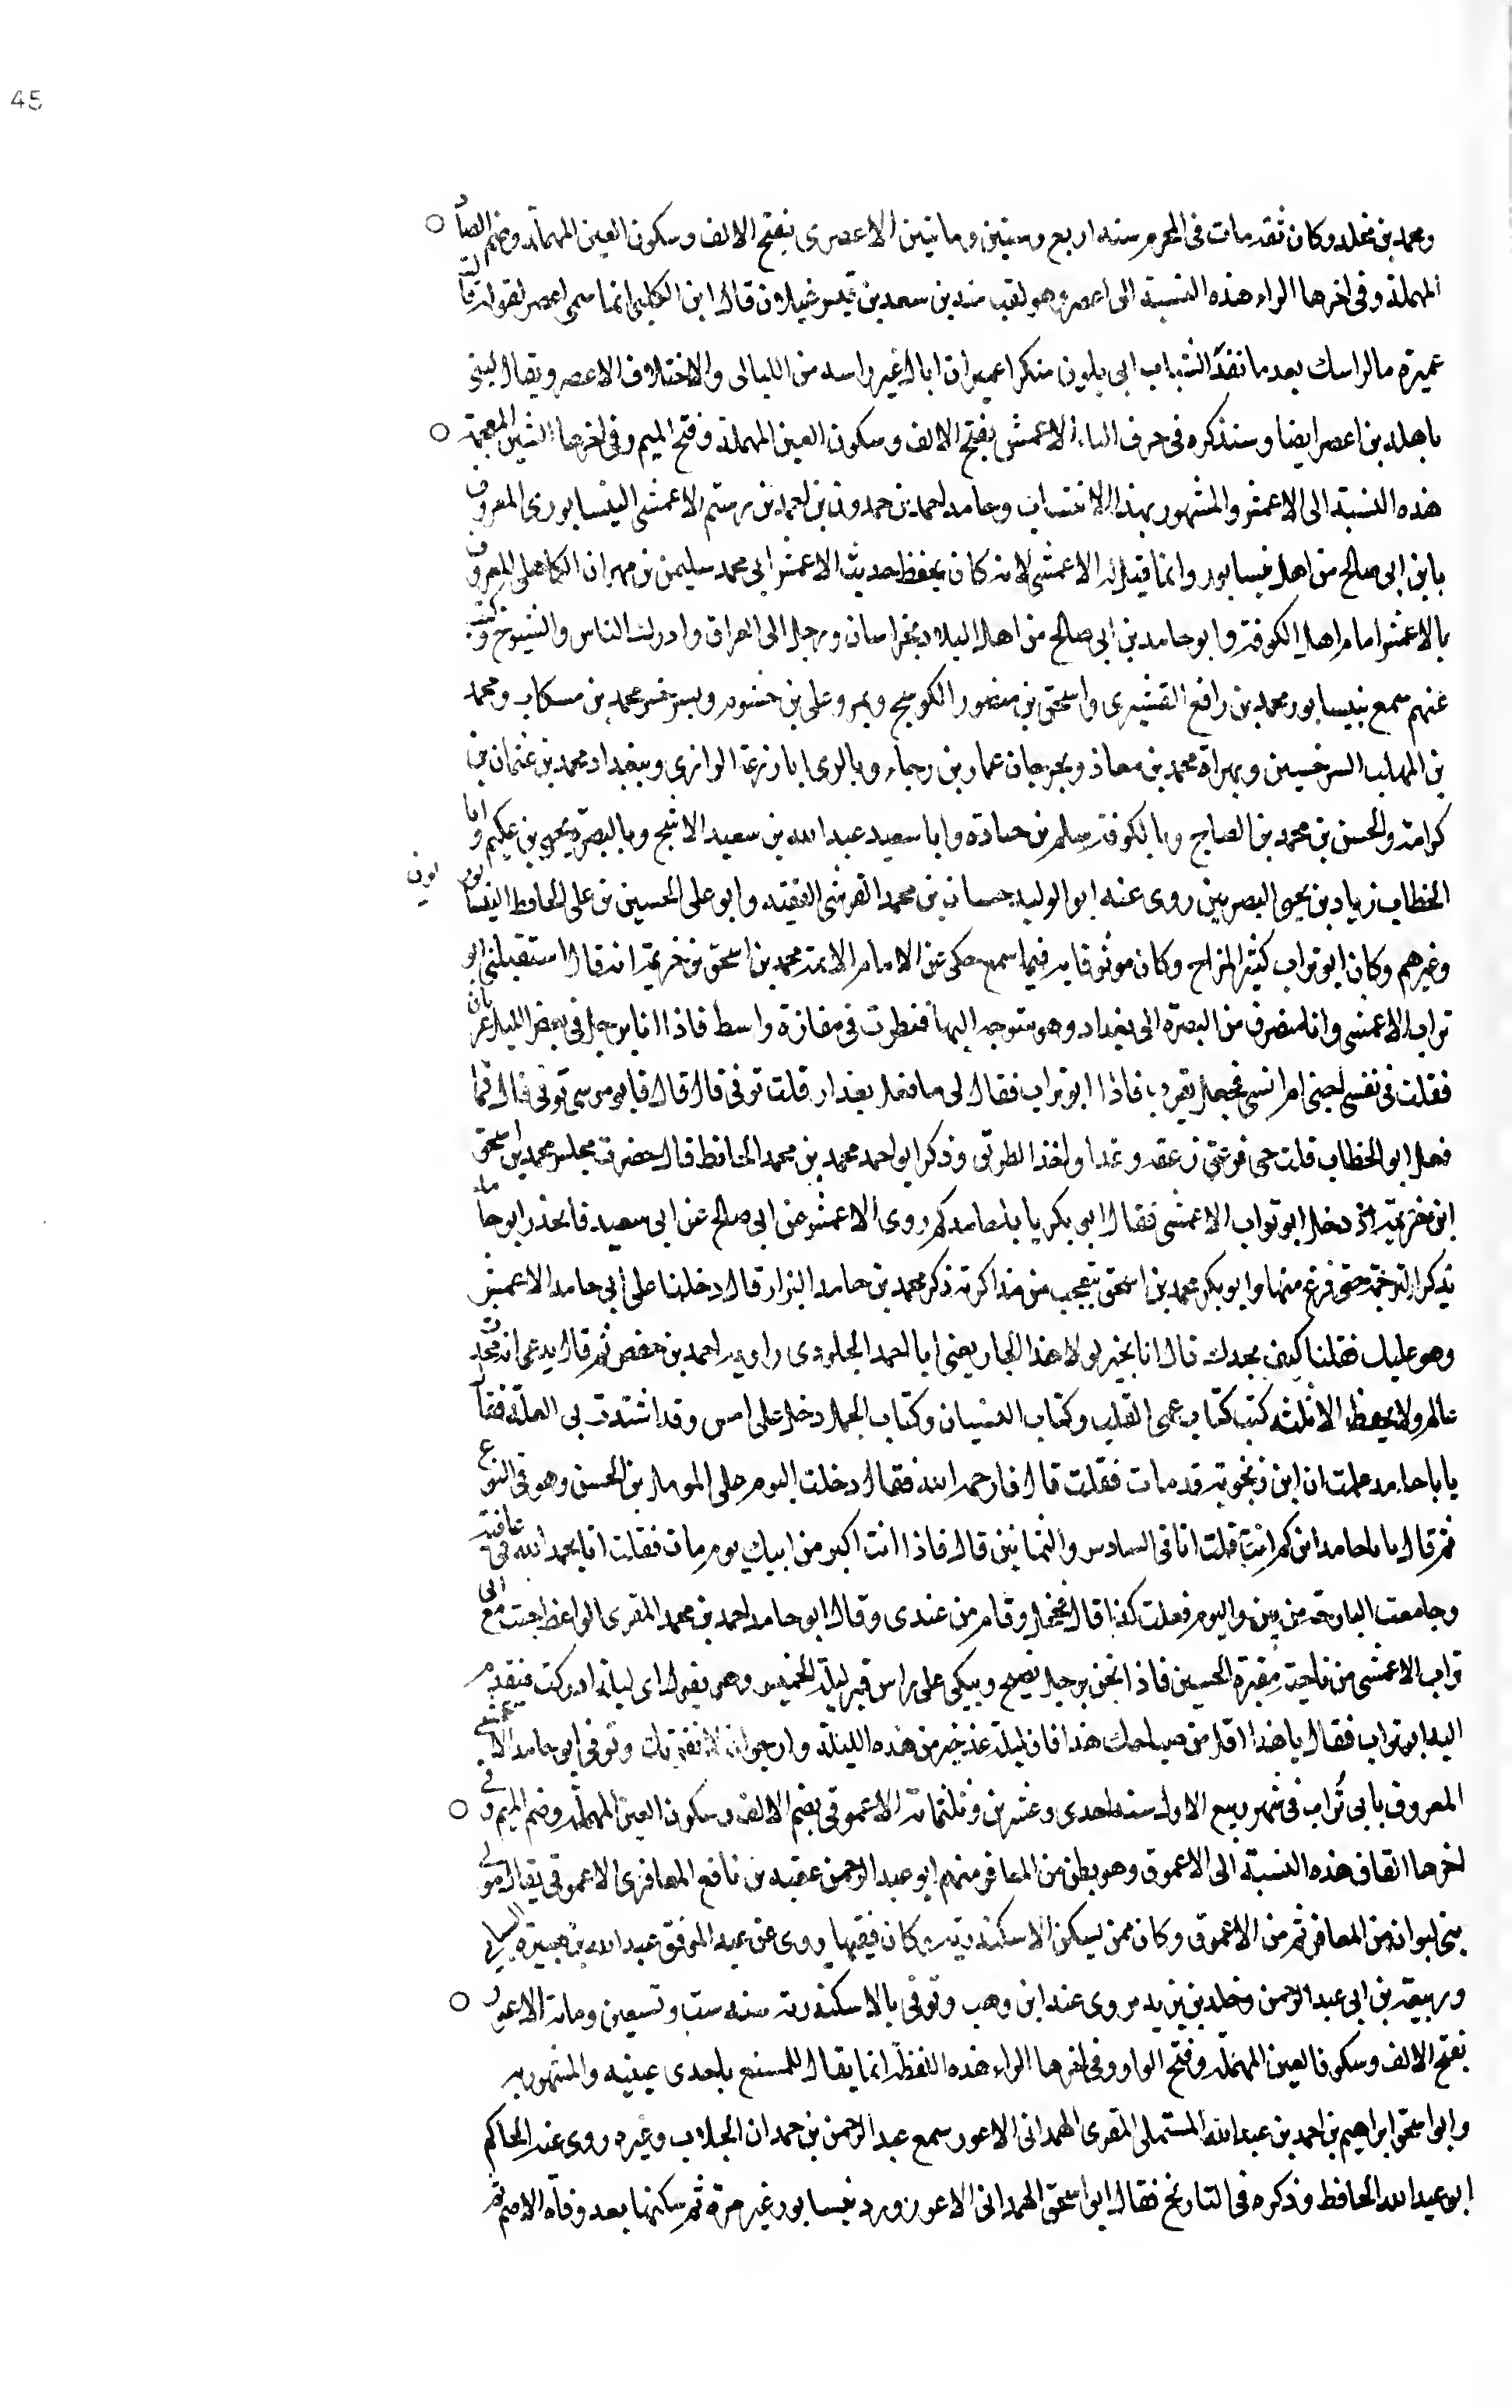 45
ومحمد بن مخلد وكان ثقة مات في المحرم سنة اربع وستين وماتين الاعصرى بفتح الالف وسكون العين المهملة وضم الصاد
المهملة وفى اخرها الراء هذه النسبة الى اعصر وهو لقب منبه بن سعد بن قيس غيلان قال ابن الكلبى انما سمى اعصر لقوله قالت
عميرة ما لراسك بعد ما نفد الشباب اتى بلون منكر اعمير ان اباك غير راسه من الليالى والاختلاف الاعصر ويقال لبنى
باهلة بن اعصر ايضا وسنذكره فى حرف الباء الاعمشى بفتح الالف وسكون العين المهملة وفتح الميم وفى اخرها الشين المعجمة
هذه النسبة الى الاعمش والمشهور بهذا الانتساب وحامد احمد بن حمدون بن احمد بن رستم الاعمشى النيسابورى المعروف
بابن ابى صالح من اهل نيسابور وانما قيل له الاعمشى لانه كان يحفظ حديث الاعمش ابى محمد سليمن بن مهران الكاهلى المعروف
بالاعمش امام اهل الكوفة وابو حامد بن ابى صالح من اهل البلاد بخراسان ورحل الى العراق وادرك الناس والشيوخ وكتب
عنهم سمع بنيسابور محمد بن رافع القشيرى واسحق بن منصور الكوسج وبمرو على بن خشرم وبسرخس محمد بن مسكاب ومحمد
بن المهلب السرخسيين وبهراة محمد بن معاذ وبجرجان عمار بن رجاء وبالرى ابا زرعة الرازى وببغداد محمد بن عثمان بن
كرامة والحسن بن محمد بن الصباح وبالكوفة سلم بن جنادة وابا سعيد عبد الله بن سعيد الاشج وبالبصرة يحيى بن حكيم وابا
الخطاب زياد بن يحيى البصريين روى عنه ابو الوليد حسان بن محمد القرشى الفقيه وابو على الحسين بن على الحافظ النيسابوريون
وغيرهم وكان ابو تراب كثير المزاح وكان موثوقا به فيما سمع حكى عن الامام الائمة محمد بن اسحق بن خزيمة انه قال استقبلنى ابو
تراب الاعمشى وانا منصرف من البصرة الى بغداد وهو متوجه اليها فنظرت فى مفازة واسط فاذا انا برجل فى بعض الليل عريان
فقلت فى نفسى اجنى ام انسى فجعل يقرب فاذا ابو تراب فقال لى ما فعل بندار قلت توفى قال قال فابو موسى توفى قال فما
فعل ابو الخطاب قلت حى فزعق زعقة وغدا واخذ الطريق وذكر ابو احمد محمد بن محمد الحافظ قال حضرت مجلس محمد بن اسحق
ابن خزيمة اذ دخل ابو تراب الاعمشى فقال ابو بكر يا با حامد كم روى الاعمش عن ابى صالح عن ابى سعيد فاخذ ابو حامد
يذكر الترجمة حتى فرغ منها وابو بكر محمد بن اسحق يتعجب من مذاكرته ذكر محمد بن حامد البزار قال دخلنا على ابى حامد الاعمش
وهو عليل فقلنا كيف تجدك قال انا بخير لولا هذا الجار يعنى ابا احمد الجلودى راوية احمد بن حفص ثم قال يدعى انه محدث
عالم ولا يحفظ الا ثلثة كتب كتاب عمى القلب وكتاب النسيان وكتاب الجهل دخل على امس وقد اشتدت بى العلة فقال
يا با حامد علمت ان ابن زنجويه قد مات فقلت قال فارحمه الله فقال دخلت اليوم على المومل بن الحسن وهو فى النزع
ثم قال يا با حامد ابن كم انت قلت انا فى السادس والثمانين قال فاذا انت اكبر من ابيك يوم مات فقلت انا بحمد الله فى عافية
وجامعت البارحة مرتين واليوم فعلت كذا قال فخجل وقام من عندى وقال ابو حامد احمد بن محمد المقرى الواعظ اجتمع مع ابى
تراب الاعمشى من ناحية مقبرة الحسين فاذا نحن برجل يصيح ويبكى على راس قبر ليلة الخميس وهو يقول اى ليلة ادركت فتقدم
اليه ابو تراب فقال يا هذا اقل من صياحك هذا فان ليلة غد خير من هذه الليلة وارجو ان لا تفوتك وتوفى ابو حامد الاعمشى
المعروف بابى تراب فى شهر ربيع الاول سنة احدى وعشرين وثلثمائة الاعموقى بضم الالف وسكون العين المهملة وضم الميم وفى
اخرها القاف هذه النسبة الى الاعموق وهو بطن من المعافر منهم ابو عبد الرحمن عقبة بن نافع المعافرى الاعموقى يقال مولى
بنى لبوان من المعافر ثم من الاعموق وكان ممن يسكن الاسكندرية وكان فقيها روى عن عبد المؤمن عبد الله بن هبيرة السبائى
وربيعة بن ابى عبد الرحمن وخلد بن يزيد روى عنه ابن وهب وتوفى بالاسكندرية سنة ست وتسعين ومائة الاعور
بفتح الالف وسكون العين المهملة وفتح الواو وفى اخرها الراء هذه اللفظة انما يقال للممتع باحدى عينيه والمشهور به
وابو اسحق ابراهيم بن احمد بن عبد الله المستملى المقرى الهمدانى الاعور سمع عبد الرحمن بن حمدان الجلاب وغيره روى عنه الحاكم
ابو عبد الله الحافظ وذكره فى التاريخ فقال ابو اسحق الهمدانى الاعور ورد نيسابور غير مرة ثم سكنها بعد وفاة الاصم ثم